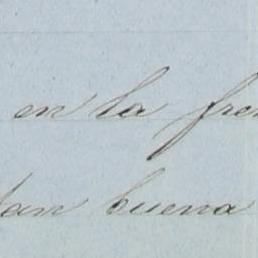 en la fre
tan buena